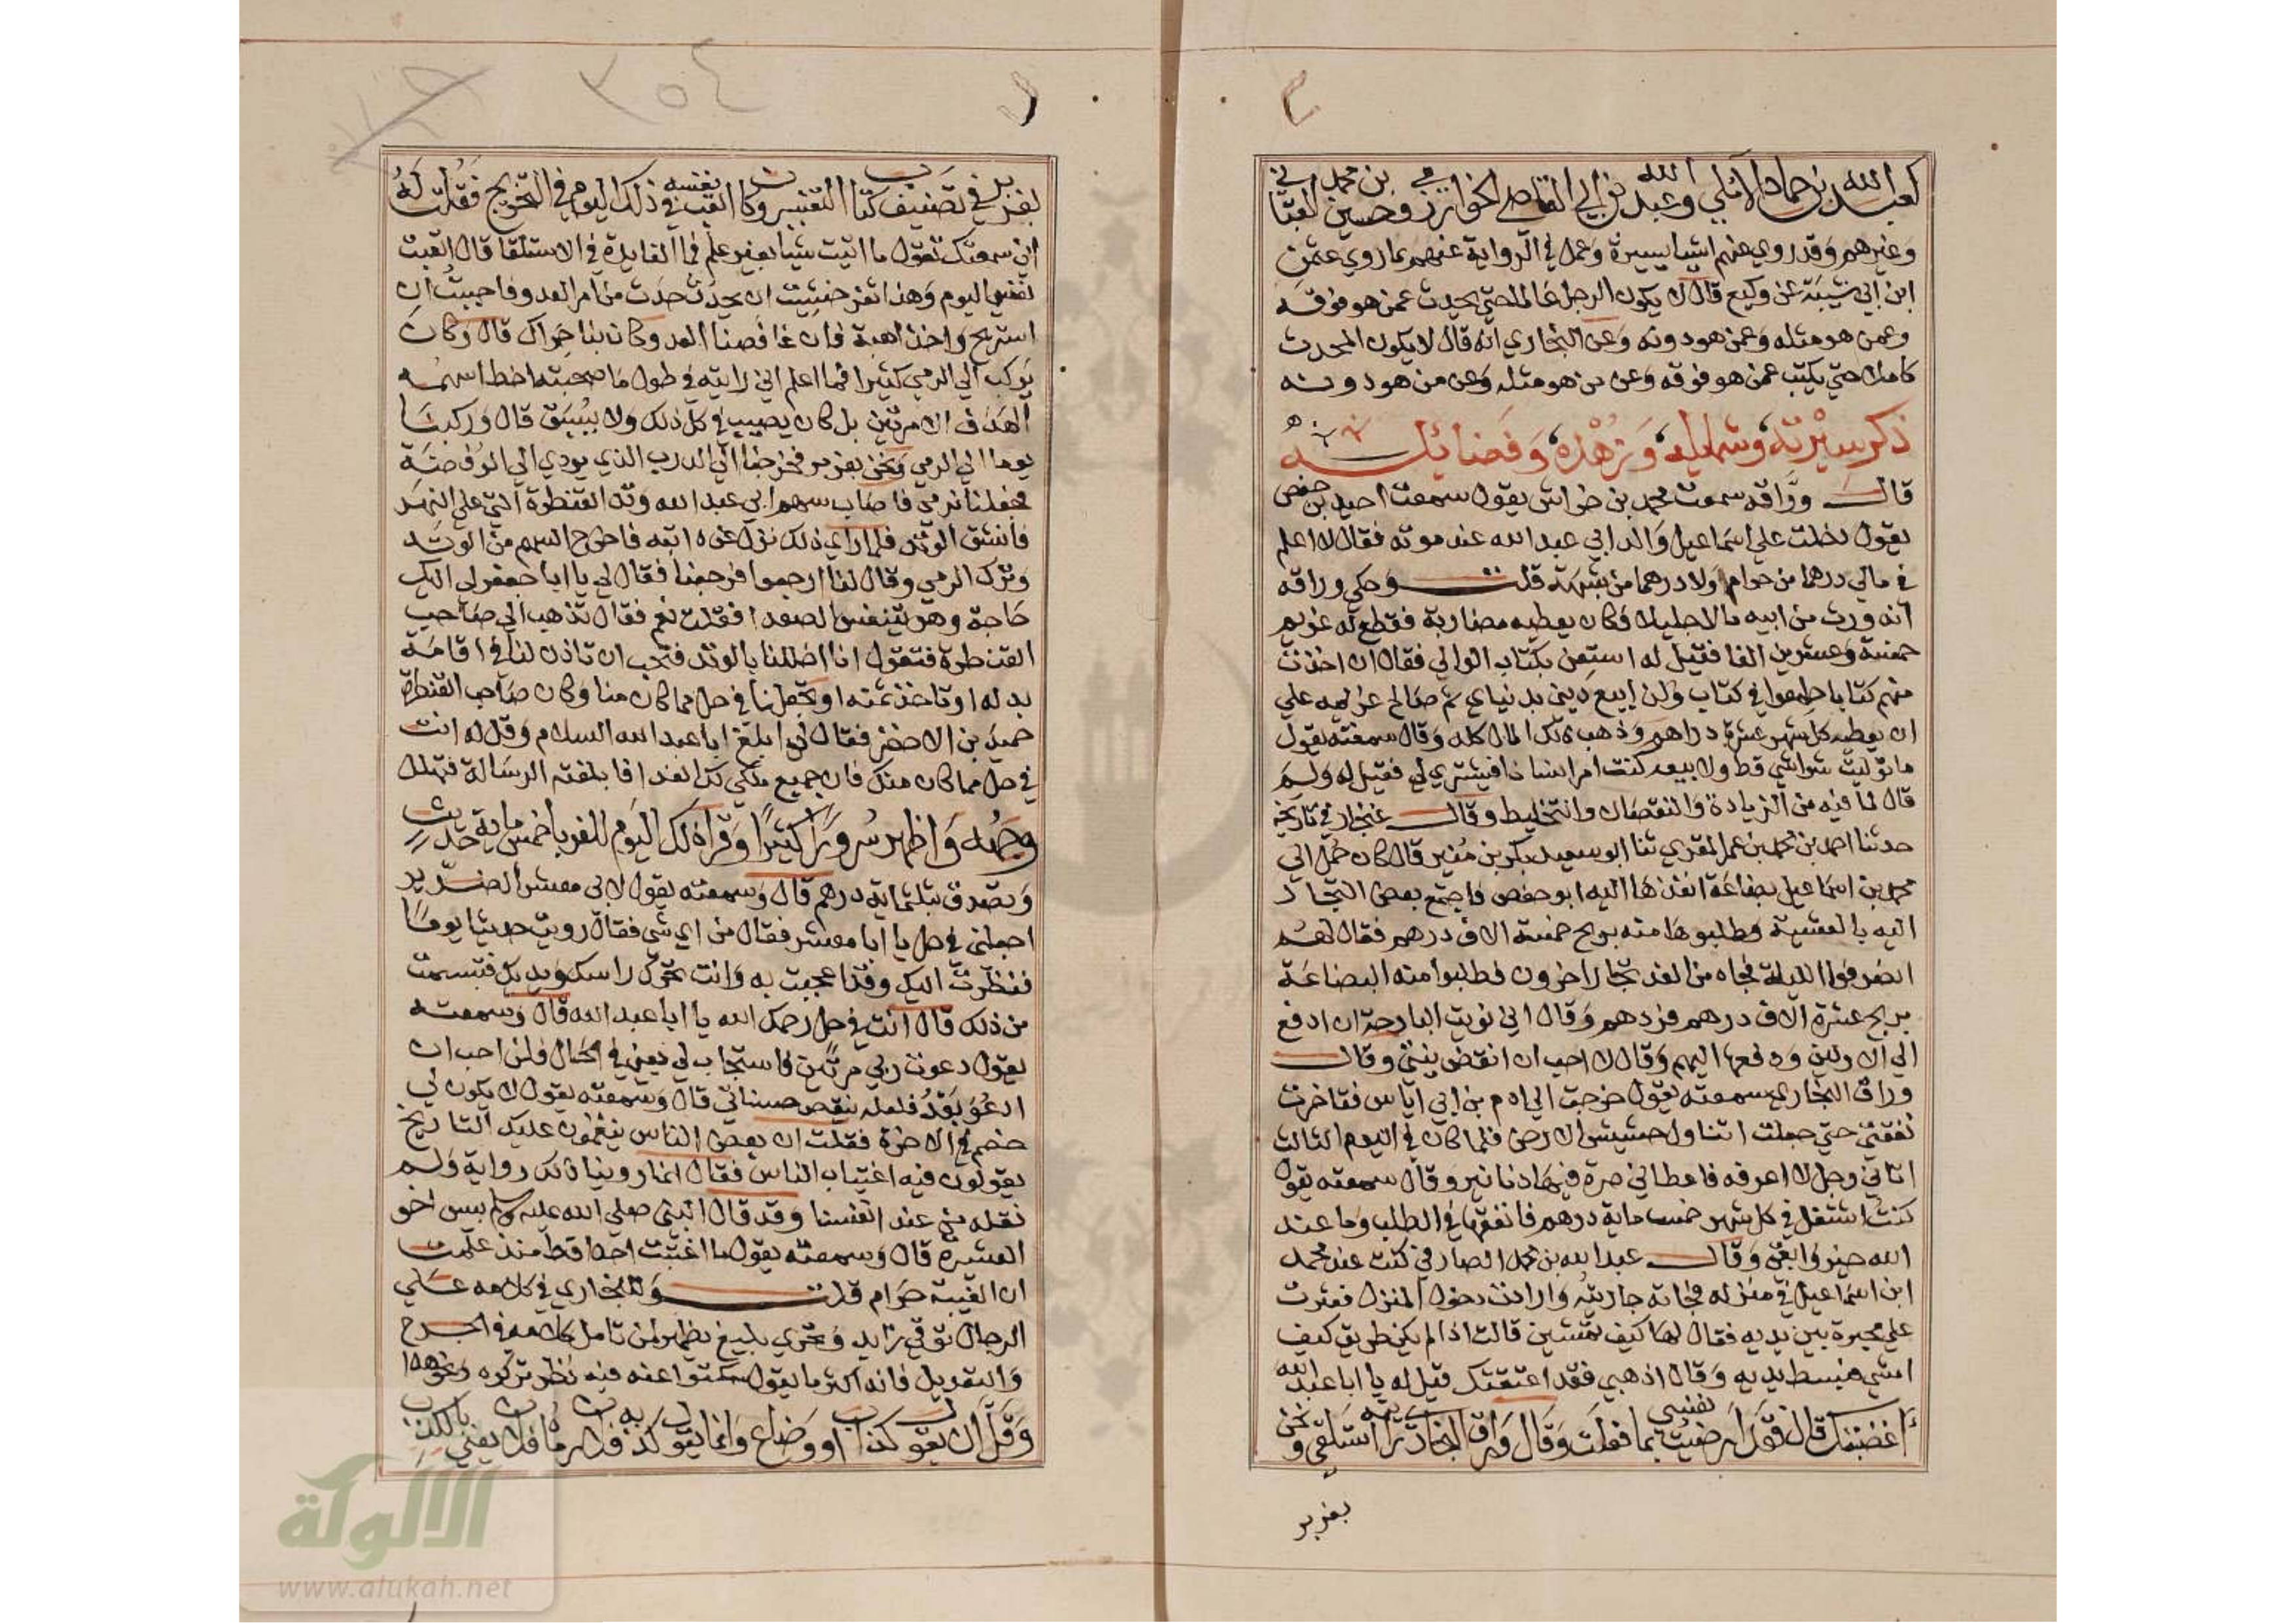 كعبد الله بن حماد الآملي وعبد الله بن ابي القاضي الخوارزمي وحسين بن محمد القباني
وغيرهم وقد روي عنهم اشيا يسيرة وعمل في الرواية عنهم بما روي عثمن
ابن ابي شيبة عن وكيع قال لا يكون الرجل عالما حتي يحدث عمن هو فوقه
وعمن هو مثله وعمن هو دونه وعن البخاري انه قال لا يكون المحدث
كاملا حتي يكتب عمن هو فوقه وعن من هو مثله وعن من هو دونه
ذكر سيرته وشمايله وزهده وفضائله
قال وراقه سمعت محمد بن خراش يقول سمعت احيد بن حفص
يقول دخلت علي اسماعيل والد ابي عبد الله عند موته فقال لا اعلم
في مالي درهما من حرام ولا درهما من شبهة قلت وحكي وراقه
انه ورث من ابيه مالا جليلا وكان يعطيه مضاربة فقطع له غريم
خمسة وعشرين الفا فقيل له استعن بكتاب الوالي فقال ان اخذت
منهم كتابا طمعوا في كتاب ولن ابيع ديني بدنياي ثم صالح غريمه علي
ان يعطيه كل شهر عشرة دراهم وذهب ذلك المال كله وقال سمعته يقول
ما توليت شرا شي قط ولا بيعه كنت امر انسانا فيشتري لي فقيل له ولم
قال لما فيه من الزيادة والنقصان والتخليط وقال غنجار في تاريخه
حدثنا احمد بن محمد بن عمر المقري ثنا ابو سعيد بكر بن منير قال كان حمل الي
محمد بن اسماعيل بضاعة انفذها اليه ابو حفص فاجتمع بعض التجار
اليه بالعشية وطلبوها منه بربح خمسة الاف درهم فقال لهم
انصرفوا الليلة فجاه من الغد تجار اخرون فطلبوا منه البضاعة
بربح عشرة الاف درهم فردهم وقال اني نويت البارحة ان ادفع
الي الاولين ودفعها اليهم وقال لا احب ان انقض نيتي وقال
وراق البخاري سمعته يقول خرجت الي ادم بن ابي اياس فتاخرت
نفقتي حتي جعلت اتناول حشيش الارض فلما كان في اليوم الثالث
اتاني رجل لا اعرفه فاعطاني صرة فيها دنانير وقال سمعته يقول
كنت استغل في كل شهر خمسماية درهم فانفقها في الطلب وما عند
الله خير وابقي وقال عبد الله بن محمد الصارفي كنت عند محمد
ابن اسماعيل في منزله فجاته جاريته وارادت دخول المنزل فعثرت
علي محبرة بين يديه فقال لها كيف تمشين قالت اذا لم يكن طريق كيف
امشي فبسط يديه وقال اذهبي فقد اعتقتك قيل له يا ابا عبد الله
أغضبتك قال فقد ارضيت نفسي بما فعلت وقال وراق البخاري رايته استلقي ونحن
بفربر
٣٠٤
بفربر في تصنيف كتاب التفسير وكان اتعب نفسه في ذلك اليوم في التخريج فقلت له
اني سمعتك تقول ما اتيت شيا بغير علم فما الفايدة في الاستلقا قال اتعبت
نفسي اليوم وهذا ثغر خشيت ان يحدث حدث من امر العدو فاحببت ان
استريح واخذ اهبة فان غافصنا العدو كان بنا حراك قال وكان
يركب الي الرمي كثيرا فما اعلم اني رايته في طول ما صحبته اخطا سهمه
الهدف الا مرتين بل كان يصيب في كل ذلك ولا يسبق قال وركبنا
يوما الي الرمي ونحن بفربر فخرجنا الي الدرب الذي يودي الي الفرضة
فجعلنا نرمي فاصاب سهم ابي عبد الله وتد القنطرة التي علي النهر
فانشق الوتد فلما راي ذلك نزل عن دابته فاخرج السهم من الوتد
وترك الرمي وقال لنا ارجعوا فرجعنا فقال لي يا ابا جعفر لي اليك
حاجة وهو يتنفس الصعدا فقلت نعم فقال تذهب الي صاحب
القنطرة فتقول انا اخللنا بالوتد فتحب ان تاذن لنا في اقامة
بدله او تاخذ ثمنه او تجعلنا في حل مما كان منا وكان صاحب القنطرة
حميد بن الاخضر فقال لي ابلغ ابا عبد الله السلام وقل له انت
في حل مما كان منك فان جميع ملكي لك الفدا فابلغته الرسالة فتهلل
وجهه واظهر سرورا كثيرا وقرا ذلك اليوم للغربا خمسماية حديث
وتصدق بثلثماية درهم قال وسمعته يقول لابي معشر الضرير
اجعلني في حل يا ابا معشر فقال من اي شي فقال رويت حديثا يوما
فنظرت اليك وقد اعجبت به وانت تحرك راسك ويديك فتبسمت
من ذلك قال انت في حل رحمك الله يا ابا عبد الله قال وسمعته
يقول دعوت ربي مرتين فاستجاب لي يعني في الحال فلن احب ان
ادعو بعد فلعله ينقص حسناتي قال وسمعته يقول لا يكون لي
خصم في الاخرة فقلت ان بعض الناس ينقمون عليك التاريخ
يقولون فيه اغتياب الناس فقال انما روينا ذلك رواية ولم
نقله من عند انفسنا وقد قال النبي صلي الله عليه وسلم بيس اخو
العشيرة قال وسمعته يقول ما اغتبت احدا قط منذ علمت
ان الغيبة حرام قلت وللبخاري في كلامه علي
الرجال توقي زايد وتحري بليغ يظهر لمن تامل كلامه في الجرح
والتعديل فانه اكثر ما يقول سكتوا عنه فيه نظر تركوه ونحو هذا
وقل ان يقول كذاب او وضاع وانما يقول كذبه فلان رماه فلان يعني بالكذب
الألوكة
www.alukah.net